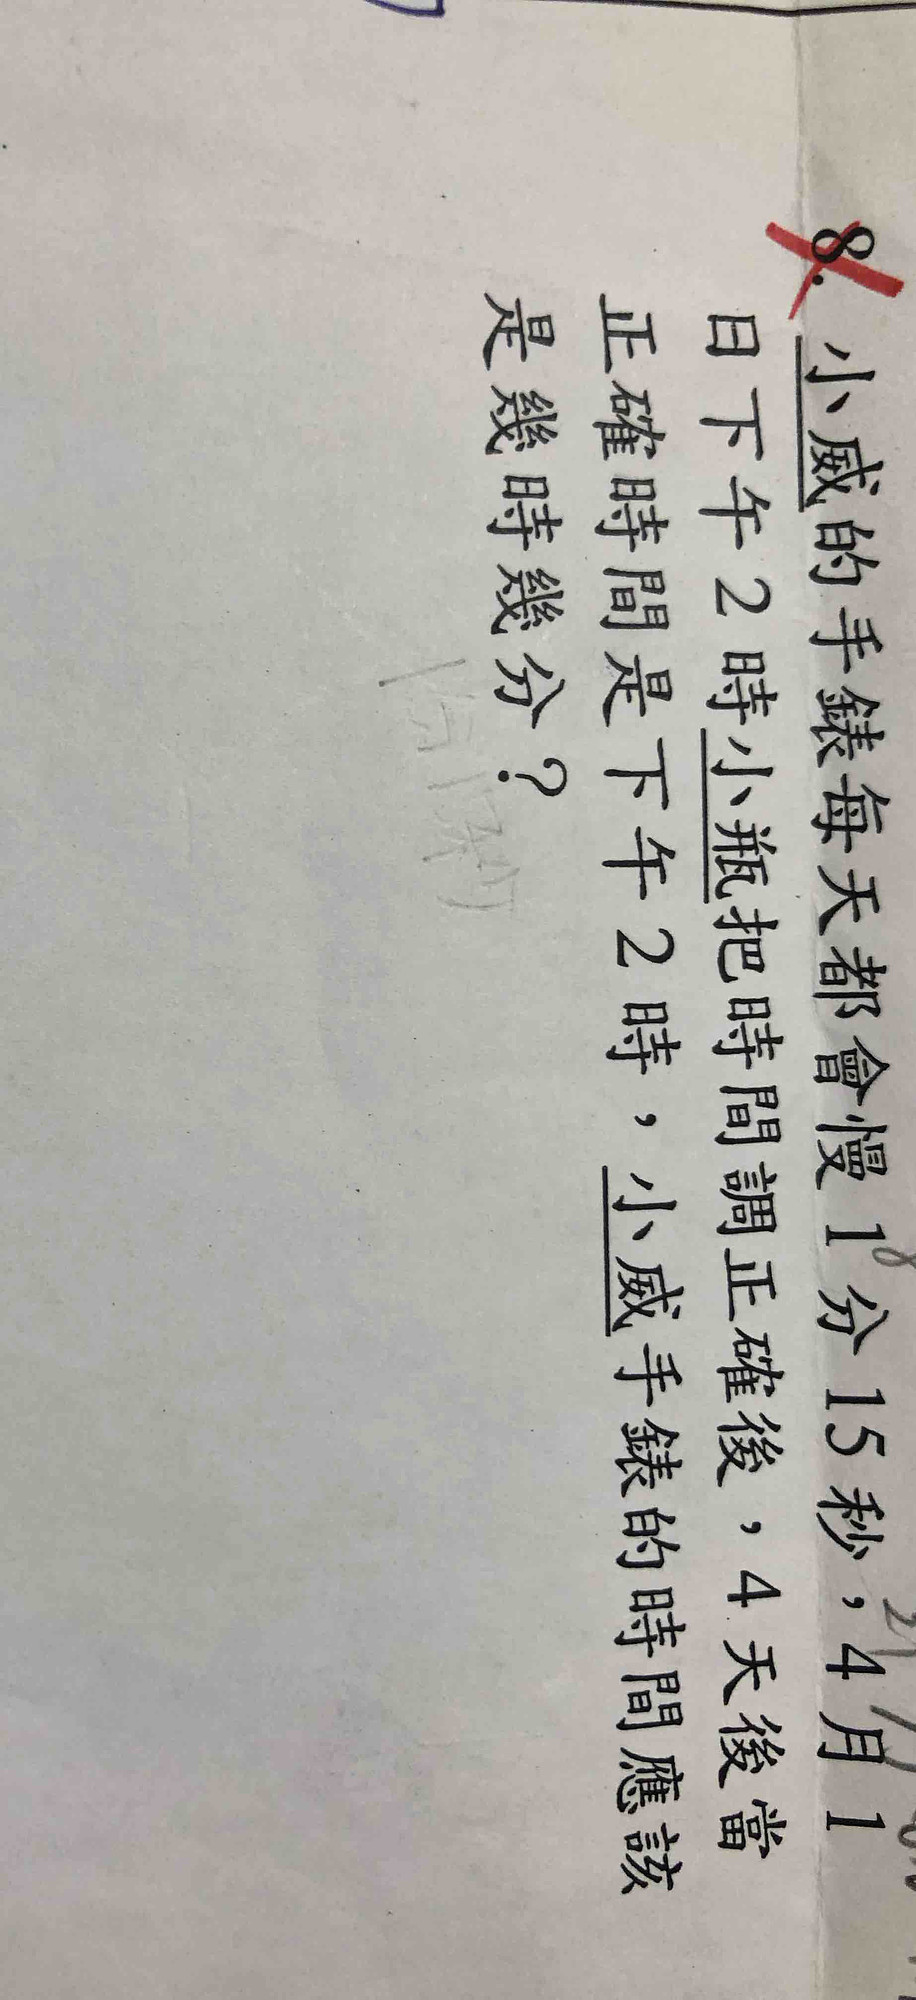 8. 小威的手錶每天都會慢1分15秒，4月1
日下午2時小瓶把時間調正確後，4天後當
正確時間是下午2時，小威手錶的時間應該
是幾時幾分？